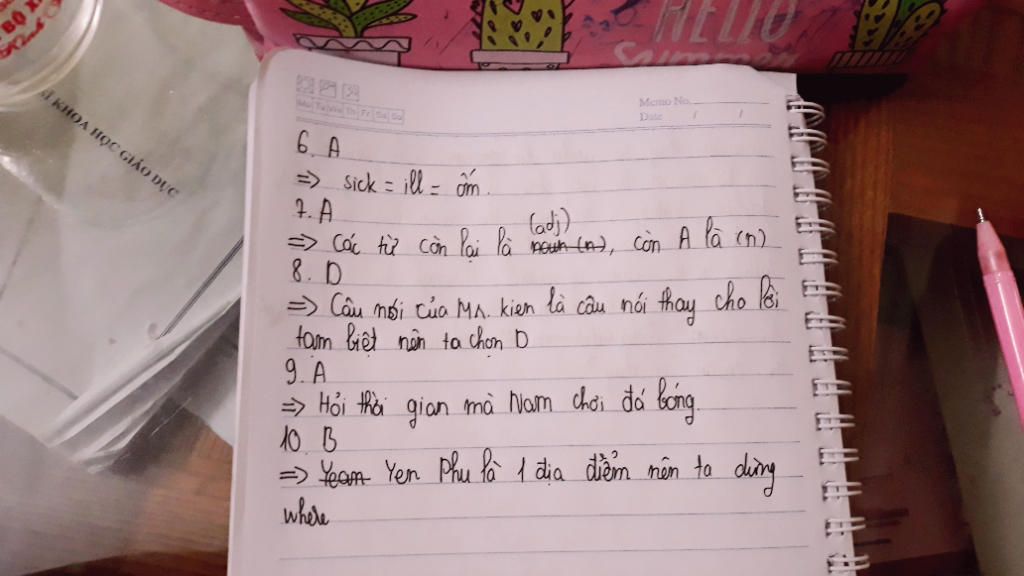 BỘ X
HELLO
Summer
KHOA HỌC GIÁO DỤC
Memo No.
Date / /
Mo Tu We Th Fr Sa Su
6. A
=> sick = ill = ốm.
7. A
(adj)
=> Các từ còn lại là noun (n), còn A là (n)
8. D
=> Câu nói của Mr. kien là câu nói thay cho lời
tạm biệt nên ta chọn D
9. A
=> Hỏi thời gian mà Nam chơi đá bóng.
10. B
=> Yeam Yen Phu là 1 địa điểm nên ta dùng
where